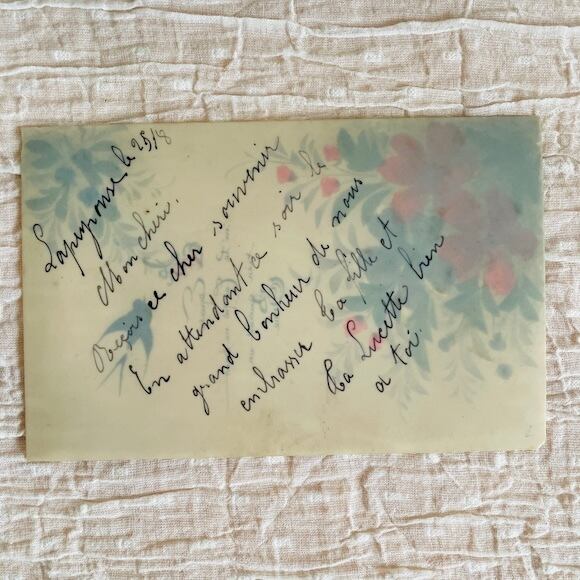 Lapeyrouse le 25/8
Mon chéri.
Reçois ce cher souvenir
En attendant ce soir le
grand bonheur de nous
embrasser ta fille et
ta Lucette bien
a toi.